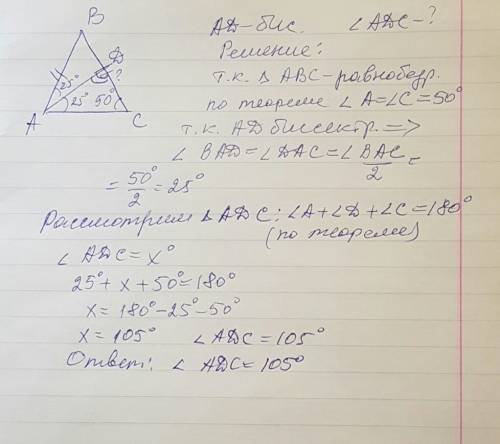 B
D
25°
?
25° 50°
A C
AD-бис. ∠ADC-?
Решение:
т.к. Δ ABC-равнобедр.
по теореме ∠A=∠C=50°
т.к. AD биссектр. =>
∠ BAD=∠DAC=∠BAC/2=
=50°/2=25°
Рассмотрим Δ ADC: ∠A+∠D+∠C=180°
(по теореме)
∠ ADC=x°
25°+x+50°=180°
x=180°-25°-50°
x=105° ∠ADC=105°
Ответ: ∠ ADC=105°